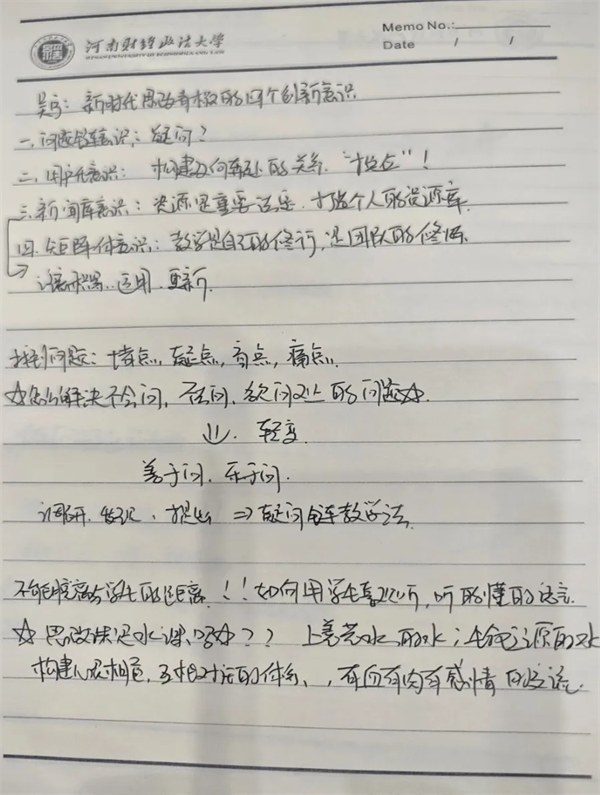 Memo No.:
河南财经政法大学
Date / /
吴宁:新时代思政育人的四个创新意识
一.问题链意识:疑问?
二.用户意识:构建如何年轻的关系."接点"!
三.新闻库意识:资源是重要渠道.打造个人的资源库.
四.矩阵体意识:教学是自己的修行,是团队的修炼.
运用.更新.
找到问题:堵点,疑点,盲点,痛点.
☆怎么解决不会问,不去问,欲问又止的问题☆.
⇓.转变
善于问.乐于问.
调研.发现、提出 ⇒疑问链教学法.
不能脱离与学生的距离.!!如何用学生喜欢听,听的懂的语言.
☆思政课是水课吗☆??上善若水的水;生命之源的水
构建心灵相通,互相对话的体系、,有血有肉有感情的交流.